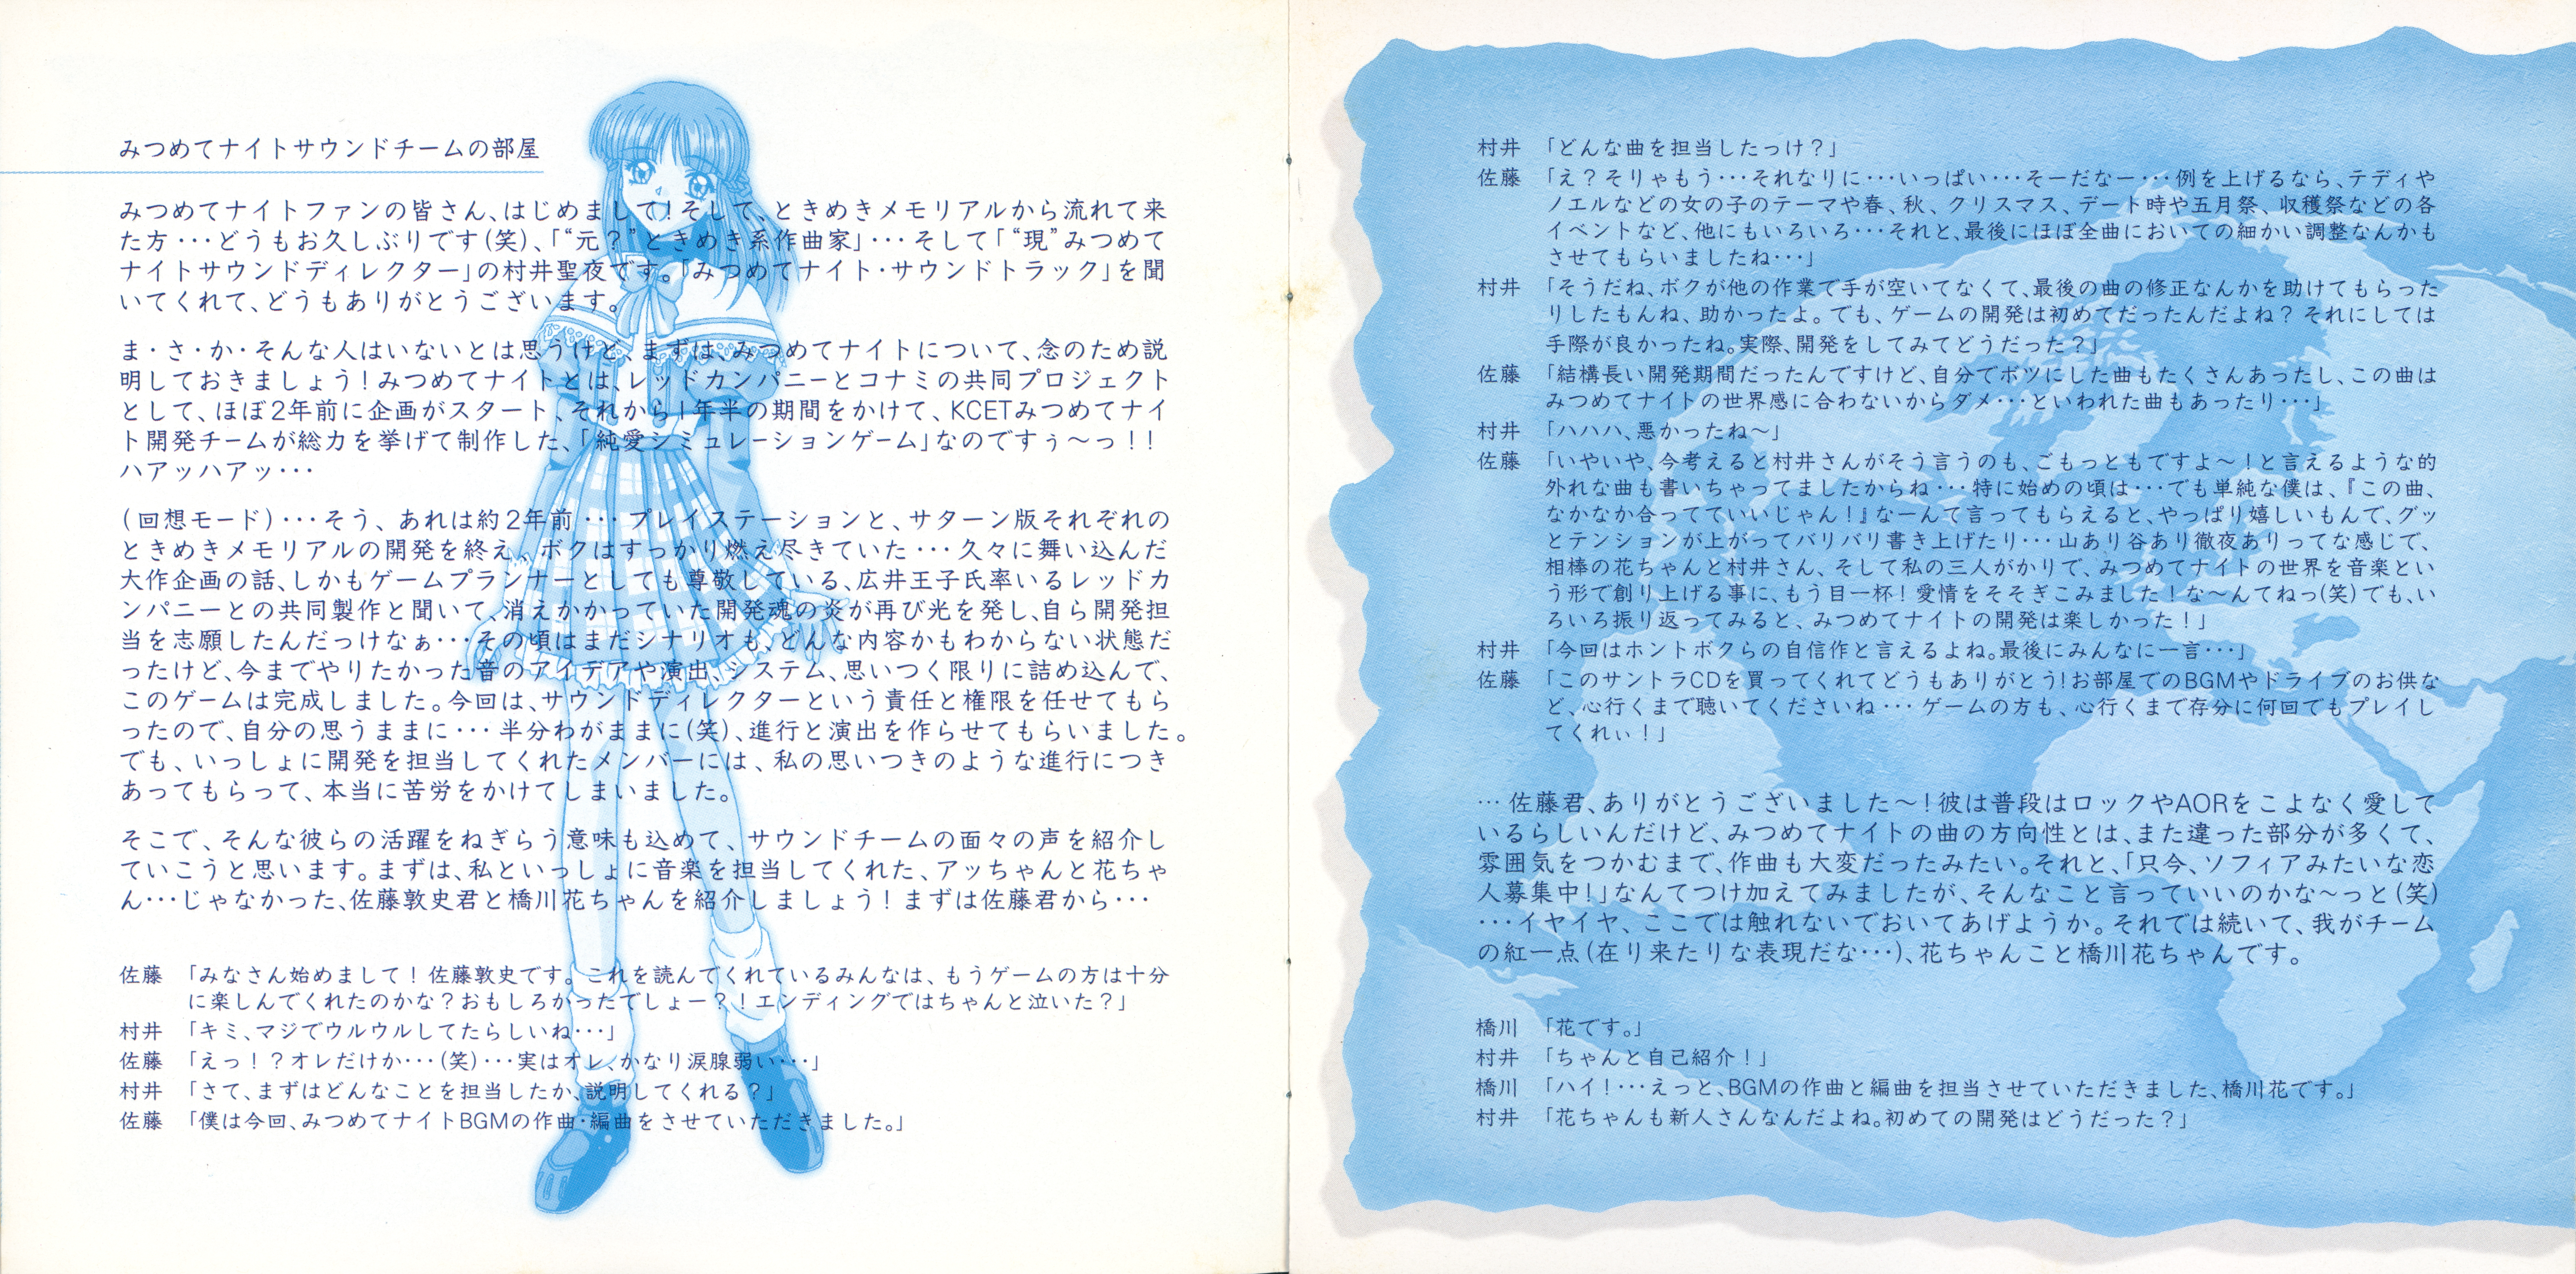 みつめてナイトサウンドチームの部屋
みつめてナイトファンの皆さん、はじめまして！そして、ときめきメモリアルから流れて来
た方…どうもお久しぶりです(笑)、「“元？”ときめき系作曲家」…そして「“現”みつめて
ナイトサウンドディレクター」の村井聖夜です。「みつめてナイト・サウンドトラック」を聞
いてくれて、どうもありがとうございます。
ま・さ・か・そんな人はいないとは思うけど、まずは、みつめてナイトについて、念のため説
明しておきましょう！みつめてナイトとは、レッドカンパニーとコナミの共同プロジェクト
として、ほぼ2年前に企画がスタート、それから1年半の期間をかけて、KCETみつめてナイ
ト開発チームが総力を挙げて制作した、「純愛シミュレーションゲーム」なのですぅ〜っ！！
ハアッハアッ…
(回想モード)…そう、あれは約2年前…プレイステーションと、サターン版それぞれの
ときめきメモリアルの開発を終え、ボクはすっかり燃え尽きていた…久々に舞い込んだ
大作企画の話、しかもゲームプランナーとしても尊敬している、広井王子氏率いるレッドカ
ンパニーとの共同製作と聞いて、消えかかっていた開発魂の炎が再び光を発し、自ら開発担
当を志願したんだっけなぁ…その頃はまだシナリオも、どんな内容かもわからない状態だ
ったけど、今までやりたかった音のアイデアや演出、システム、思いつく限りに詰め込んで、
このゲームは完成しました。今回は、サウンドディレクターという責任と権限を任せてもら
ったので、自分の思うままに…半分わがままに(笑)、進行と演出を作らせてもらいました。
でも、いっしょに開発を担当してくれたメンバーには、私の思いつきのような進行につき
あってもらって、本当に苦労をかけてしまいました。
そこで、そんな彼らの活躍をねぎらう意味も込めて、サウンドチームの面々の声を紹介し
ていこうと思います。まずは、私といっしょに音楽を担当してくれた、アッちゃんと花ちゃ
ん…じゃなかった、佐藤敦史君と橋川花ちゃんを紹介しましょう！まずは佐藤君から…
佐藤　「みなさん始めまして！佐藤敦史です。これを読んでくれているみんなは、もうゲームの方は十分
に楽しんでくれたのかな？おもしろかったでしょー？！エンディングではちゃんと泣いた？」
村井　「キミ、マジでウルウルしてたらしいね…」
佐藤　「えっ！？オレだけか…(笑)…実はオレ、かなり涙腺弱い…」
村井　「さて、まずはどんなことを担当したか、説明してくれる？」
佐藤　「僕は今回、みつめてナイトBGMの作曲・編曲をさせていただきました。」
村井　「どんな曲を担当したっけ？」
佐藤　「え？そりゃもう…それなりに…いっぱい…そーだなー…例を上げるなら、テディや
ノエルなどの女の子のテーマや春、秋、クリスマス、デート時や五月祭、収穫祭などの各
イベントなど、他にもいろいろ…それと、最後にほぼ全曲においての細かい調整なんかも
させてもらいましたね…」
村井　「そうだね、ボクが他の作業で手が空いてなくて、最後の曲の修正なんかを助けてもらった
りしたもんね、助かったよ。でも、ゲームの開発は初めてだったんだよね？それにしては
手際が良かったね。実際、開発をしてみてどうだった？」
佐藤　「結構長い開発期間だったんですけど、自分でボツにした曲もたくさんあったし、この曲は
みつめてナイトの世界感に合わないからダメ…といわれた曲もあったり…」
村井　「ハハハ、悪かったね〜」
佐藤　「いやいや、今考えると村井さんがそう言うのも、ごもっともですよ〜！と言えるような的
外れな曲も書いちゃってましたからね…特に始めの頃は…でも単純な僕は、『この曲、
なかなか合ってていいじゃん！』なーんて言ってもらえると、やっぱり嬉しいもんで、グッ
とテンションが上がってバリバリ書き上げたり…山あり谷あり徹夜ありってな感じで、
相棒の花ちゃんと村井さん、そして私の三人がかりで、みつめてナイトの世界を音楽とい
う形で創り上げる事に、もう目一杯！愛情をそそぎこみました！な〜んてねっ(笑)でも、い
ろいろ振り返ってみると、みつめてナイトの開発は楽しかった！」
村井　「今回はホントボクらの自信作と言えるよね。最後にみんなに一言…」
佐藤　「このサントラCDを買ってくれてどうもありがとう！お部屋でのBGMやドライブのお供な
ど、心行くまで聴いてくださいね…ゲームの方も、心行くまで存分に何回でもプレイし
てくれぃ！」
…佐藤君、ありがとうございました〜！彼は普段はロックやAORをこよなく愛して
いるらしいんだけど、みつめてナイトの曲の方向性とは、また違った部分が多くて、
雰囲気をつかむまで、作曲も大変だったみたい。それと、「只今、ソフィアみたいな恋
人募集中！」なんてつけ加えてみましたが、そんなこと言っていいのかな〜っと(笑)
…イヤイヤ、ここでは触れないでおいてあげようか。それでは続いて、我がチーム
の紅一点(在り来たりな表現だな…)、花ちゃんこと橋川花ちゃんです。
橋川　「花です。」
村井　「ちゃんと自己紹介！」
橋川　「ハイ！…えっと、BGMの作曲と編曲を担当させていただきました、橋川花です。」
村井　「花ちゃんも新人さんなんだよね。初めての開発はどうだった？」